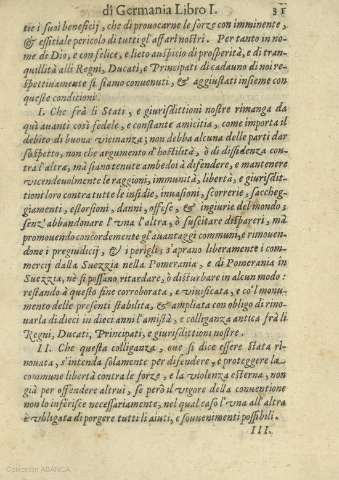 di Germania Libro I. 31
tie i suoi beneficij, che di prouocarne le forze con imminente,
& essitiale pericolo di tutti gl'affari nostri. Per tanto in no
me di Dio, e con felice, e lieto auspicio di prosperità, e di tran-
quillità alli Regni, Ducati, e Principati di cadauno di noi re-
spettiuamente si siamo conuenuti, & aggiustati insieme con
queste condizioni.
I. Che frà li Stati, e giurisdittioni nostre rimanga da
quì auanti così fedele, e constante amicitia, come importa il
debito di buona vicinanza; non debba alcuna delle parti dar
sospetto, non che argomento d'hostilità, ò di diffidenza con-
tra l'altra, mà siano tenute ambedoi à difendere, e mantenere
vicendeuolmente le raggioni, immunità, libertà, e giurisdit-
tioni loro contra tutte le insidie, inuasioni, scorrerie, saccheg-
giamenti, estorsioni, danni, offise, & ingiurie del mondo;
senz'abbandonare l'vna l'altra, ò suscitare dispareri, mà
promouendo concordemente gl'auantaggi communi, e rimouen-
done i pregiudicij, & i perigli; s'aprano liberamente i com-
mercij dalla Suezzia nella Pomerania, e di Pomerania in
Suezzia, nè si possano ritardare, ò disturbare in alcun modo:
restando à questo fine corroborata, e viuificata, e co'l monu-
mento delle presenti stabilita, & ampliata con obligo di rino-
uarla di dieci in dieci anni l'amistà, e colliganza antica frà li
Regni, Ducati, Principati, e giurisdittioni nostre.
II. Che questa colliganza, oue si dice essere stata ri-
nouata, s'intenda solamente per difendere, e proteggere la
commune libertà contro le forze, e la violenza esterna, non
già per offendere altrui, se però il vigore della conuentione
non lo inferisce necessariamente, nel qual caso l'vna all'altra
è vbligata di porgere tutti li aiuti, e souuenimenti possibili.
III.
Colección ABANCA